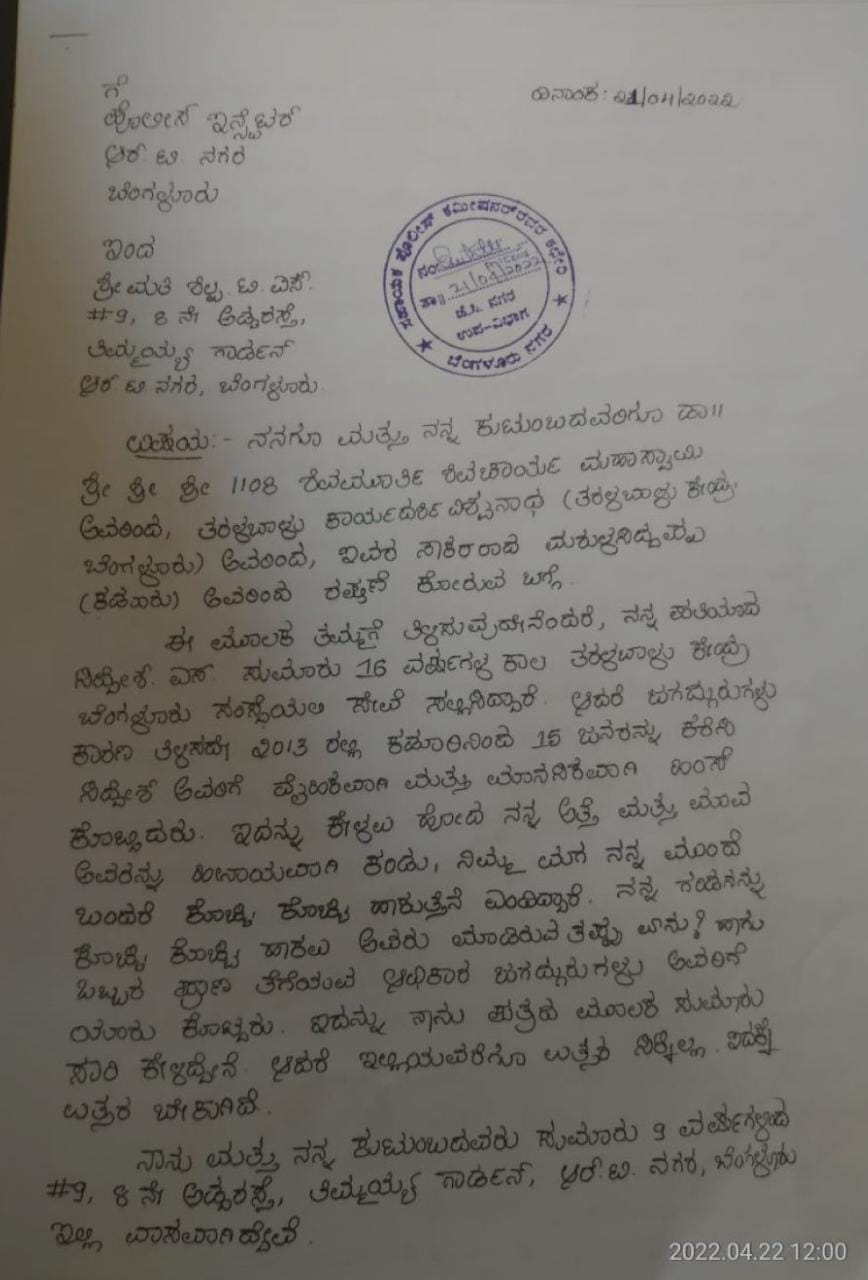 ಗೆ
ದಿನಾಂಕ: 21/04/2022
ಪೋಲೀಸ್ ಇನ್ಸ್ಪೆಟರ್
ಆರ್. ಟಿ. ನಗರ
ಬೆಂಗಳೂರು
ಸಹಾಯಕ ಪೊಲೀಸ್ ಕಮೀಷನರ್‌ರವರ ಕಛೇರಿ
ನಂ:
ತಾ॥ 21/04/2022
ಜೆ.ಸಿ. ನಗರ
ಉಪ-ವಿಭಾಗ
★ ಬೆಂಗಳೂರು ನಗರ ★
ಇಂದ
ಶ್ರೀಮತಿ ಶಿಲ್ಪ. ಟಿ. ಎಸ್.
#9, 8 ನೇ ಅಡ್ಡರಸ್ತೆ,
ತಿಮ್ಮಯ್ಯ ಗಾರ್ಡನ್
ಆರ್. ಟಿ. ನಗರ, ಬೆಂಗಳೂರು.
ವಿಷಯ:- ನನಗೂ ಮತ್ತು ನನ್ನ ಕುಟುಂಬದವರಿಗೂ ಡಾ॥
ಶ್ರೀ ಶ್ರೀ ಶ್ರೀ 1108 ಶಿವಮೂರ್ತಿ ಶಿವಚಾರ್ಯ ಮಹಾಸ್ವಾಮಿ
ಅವರಿಂದ, ತರಳಬಾಳು ಕಾರ್ಯದರ್ಶಿ ವಿಶ್ವನಾಥ (ತರಳಬಾಳು ಕೇಂದ್ರ,
ಬೆಂಗಳೂರು) ಅವರಿಂದ, ಇವರ ಸಾಕಿರರಾದ ಮರುಳಸಿದ್ದಪ್ಪ
(ಕಡೂರು) ಅವರಿಂದ ರಕ್ಷಣೆ ಕೋರುವ ಬಗ್ಗೆ.
ಈ ಮೂಲಕ ತಮ್ಮಗೆ ತಿಳಿಸುವುದೇನೆಂದರೆ, ನನ್ನ ಪತಿಯಾದ
ಸಿದ್ದೇಶ್. ಎಸ್. ಸುಮಾರು 16 ವರ್ಷಗಳ ಕಾಲ ತರಳಬಾಳು ಕೇಂದ್ರ
ಬೆಂಗಳೂರು ಸಂಸ್ಥೆಯಲಿ ಸೇವೆ ಸಲ್ಲಿಸಿದ್ದಾರೆ. ಆದರೆ ಜಗದ್ಗುರುಗಳು
ಕಾರಣ ತಿಳಿಸದೇ 2013 ರಲ್ಲಿ ಕಡೂರಿನಿಂದ 15 ಜನರನ್ನು ಕರೆಸಿ
ಸಿದ್ದೇಶ್ ಅವರಿಗೆ ದೈಹಿಕವಾಗಿ ಮತ್ತು ಮಾನಸಿಕವಾಗಿ ಹಿಂಸೆ
ಕೊಟ್ಟಿದರು. ಇದನ್ನು ಕೇಳಲು ಹೋದ ನನ್ನ ಅತ್ತೆ ಮತ್ತು ಮಾವ
ಅವರನ್ನು ಹೀನಾಯವಾಗಿ ಕಂಡು, ನಿಮ್ಮ ಮಗ ನನ್ನ ಮುಂದೆ
ಬಂದರೆ ಕೊಚ್ಚಿ ಕೊಚ್ಚಿ ಹಾಕುತ್ತೆನೆ ಎಂದಿದ್ದಾರೆ. ನನ್ನ ಗಂಡನನ್ನು
ಕೊಚ್ಚಿ ಕೊಚ್ಚಿ ಹಾಕಲು ಅವರು ಮಾಡಿರುವ ತಪ್ಪು ಏನು? ಹಾಗು
ಒಬ್ಬರ ಪ್ರಾಣ ತೆಗೆಯುವ ಅಧಿಕಾರ ಜಗದ್ಗುರುಗಳು ಅವರಿಗೆ
ಯಾರು ಕೊಟ್ಟರು. ಇದನ್ನು ನಾನು ಪತ್ರದ ಮೂಲಕ ಸುಮಾರು
ಸಾರಿ ಕೇಳಿದ್ದೇನೆ. ಆದರೆ ಇಲ್ಲಿಯವರೆಗೂ ಉತ್ತರ ಸಿಕ್ಕಿಲ್ಲ. ಇದಕ್ಕೆ
ಉತ್ತರ ಬೇಕಾಗಿದೆ.
ನಾನು ಮತ್ತು ನನ್ನ ಕುಟುಂಬದವರು ಸುಮಾರು 9 ವರ್ಷಗಳಿಂದ
#9, 8 ನೇ ಅಡ್ಡರಸ್ತೆ, ತಿಮ್ಮಯ್ಯ ಗಾರ್ಡನ್, ಆರ್. ಟಿ. ನಗರ, ಬೆಂಗಳೂರು
ಇಲ್ಲಿ ವಾಸವಾಗಿದ್ದೇವೆ.
2022.04.22 12:00